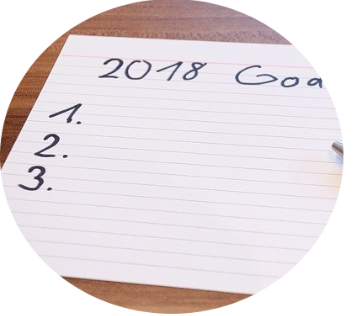 2018 Goa
1.
2.
3.